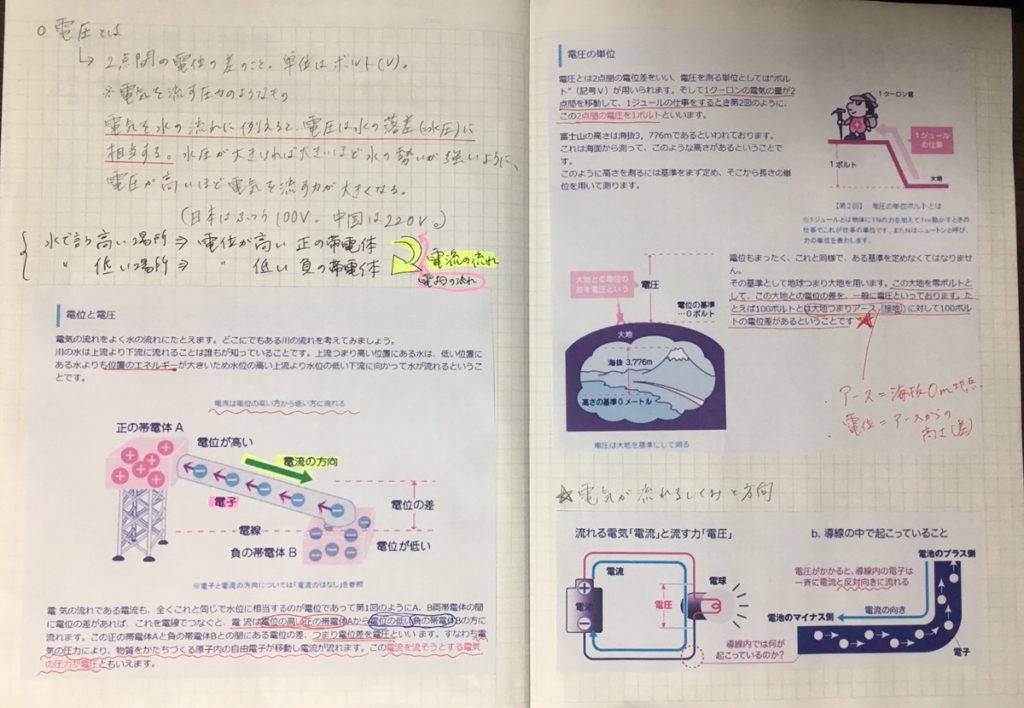 ○ 電圧とは
↳ 2点間の電位の差のこと。単位はボルト(V)。
※電気を流す圧力のようなもの
電気を水の流れに例えると、電圧は水の落差(=水圧)に
相当する。水圧が大きければ大きいほど水の勢いが強いように、
電圧が高いほど電気を流す力が大きくなる。
(日本はふつう100V。中国は220V。)
水で言う高い場所 ⇒ 電位が高い 正の帯電体
〃 低い場所 ⇒ 〃 低い 負の帯電体
電流の流れ
電子の流れ
電位と電圧
電気の流れをよく水の流れにたとえます。どこにでもある川の流れを考えてみましょう。
川の水は上流より下流に流れることは誰もが知っていることです。上流つまり高い位置にある水は、低い位置に
ある水よりも位置のエネルギーが大きいため水位の高い上流より水位の低い下流に向かって水が流れるというこ
とです。
電流は電位の高い方から低い方に流れる
正の帯電体 A
電位が高い
電流の方向
電子
電位の差
電線
負の帯電体 B
電位が低い
※電子と電流の方向については「電流のはなし」を参照
電 気の流れである電流も、全くこれと同じで水位に相当するのが電位であって第1図のようにA、B両帯電体の間
に電位の差があれば、これを電線でつなぐと、電 流は電位の高い正の帯電体Aから電位の低い負の帯電体Bの方に
流れます。この正の帯電体Aと負の帯電体Bとの間にある電位の差、つまり電位差を電圧といいます。すなわち電
気の圧力により、物質をかたちづくる原子内の自由電子が移動し電流が流れます。この電流を流そうとする電気
の圧力が電圧ともいえます。
電圧の単位
電圧とは2点間の電位差をいい、電圧を測る単位としては"ボル
ト"(記号V)が用いられます。そして1クーロンの電気の量が2
点間を移動して、1ジュールの仕事をするとき第2図のように、
この2点間の電圧を1ボルトといいます。
富士山の高さは海抜3，776mであるといわれております。
これは海面から測って、このような高さがあるということで
す。
このように高さを測るには基準をまず定め、そこから長さの単
位を用いて測ります。
1クーロン君
1ジュール
の仕事
1ボルト
大地
【第2図】 電圧の単位ボルトとは
※1ジュールとは物体に1Nの力を加えて1m動かすときの
仕事でこれが仕事の単位です。またNはニュートンと呼び、
力の単位を表わします。
大地との電位の
差を電圧という
電圧
電位の基準
…0ボルト
大地
海抜 3,776m
高さの基準0メートル
電圧は大地を基準にして測る
電位もまったく、これと同様で、ある基準を定めなくてはなりませ
ん。
その基準として地球つまり大地を用います。この大地を零ボルトと
して、この大地との電位の差を、一般に電圧といっております。た
とえば100ボルトとは大地つまりアース(接地)に対して100ボル
トの電位差があるということです
・アース=海抜0m地点
・電位=アースからの
高さ(差)
☆電気が流れるしくみと方向
流れる電気「電流」と流す力「電圧」
電流
電池
電圧
電球
導線内では何が
起こっているのか?
b. 導線の中で起こっていること
電池のプラス側
電圧がかかると、導線内の電子は
一斉に電流と反対向きに流れる
電流の向き
電池のマイナス側
電子